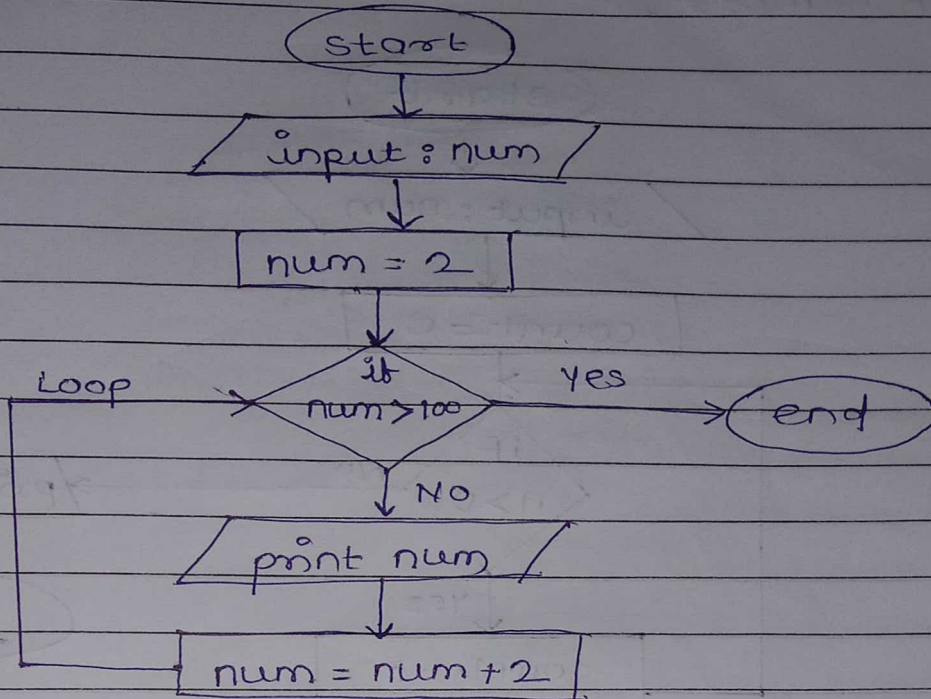 start
input : num
num = 2
if
num > 100
Loop
yes
end
NO
print num
num = num + 2